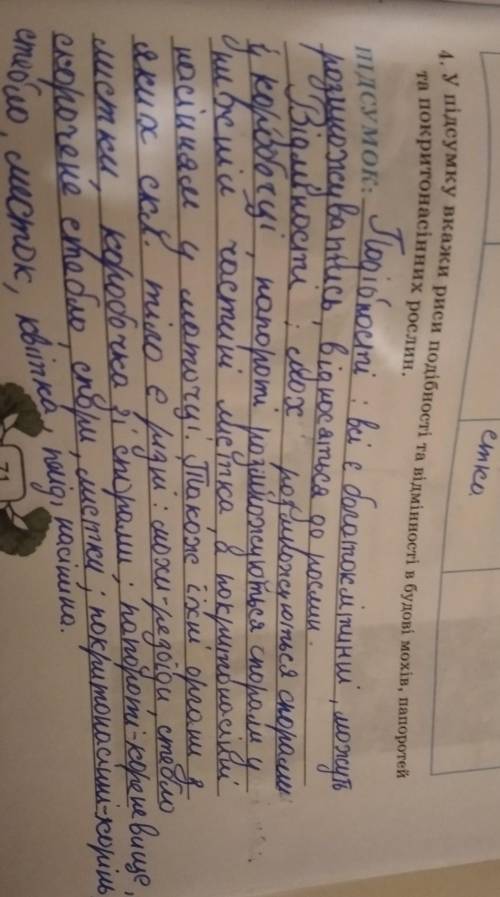 стка
4. У підсумку вкажи риси подібності та відмінності в будові мохів, папоротей
та покритонасінних рослин.
ПІДСУМОК: Подібності: всі є багатоклітинні, можуть
розмножуватись, відносяться до рослин.
Відмінності: мох розмножуються спорами
у коробочці, папороті розмножуються спорами у
нижній частині листка, а покритонасінні
насінням у маточці. Також їхні органи з
яких скл. тіло є різні: мохи-резоїди, стебло
листки, коробочка зі спорами; папороті-кореневище,
скорочене стебло, спори, листки; покритонасінні-корінь,
стебло, листок, квітка, плід, насінина.
71